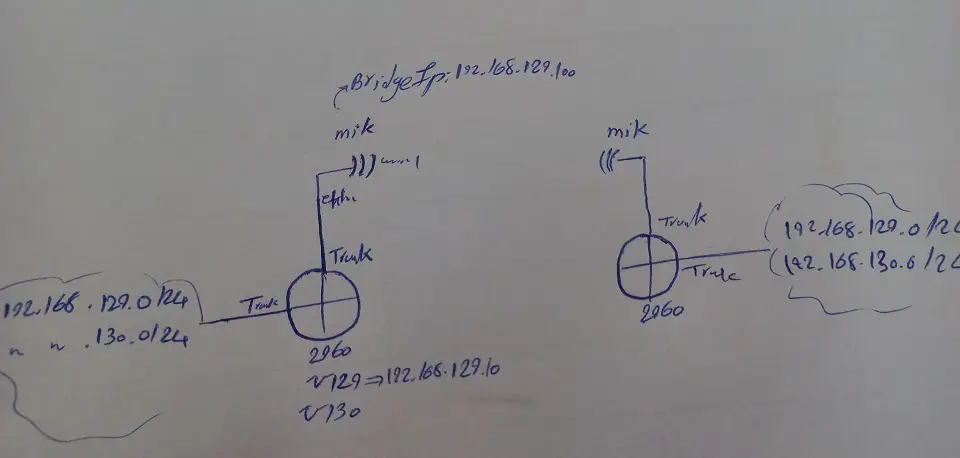 BridgeIp: 192.168.129.100
mik
mik
Trunk
Trunk
192.168.129.0/24
192.168.129.0/24
192.168.130.0/24
Trunk
Trunk
~ ~ .130.0/24
2960
2960
V129 => 192.168.129.10
V130